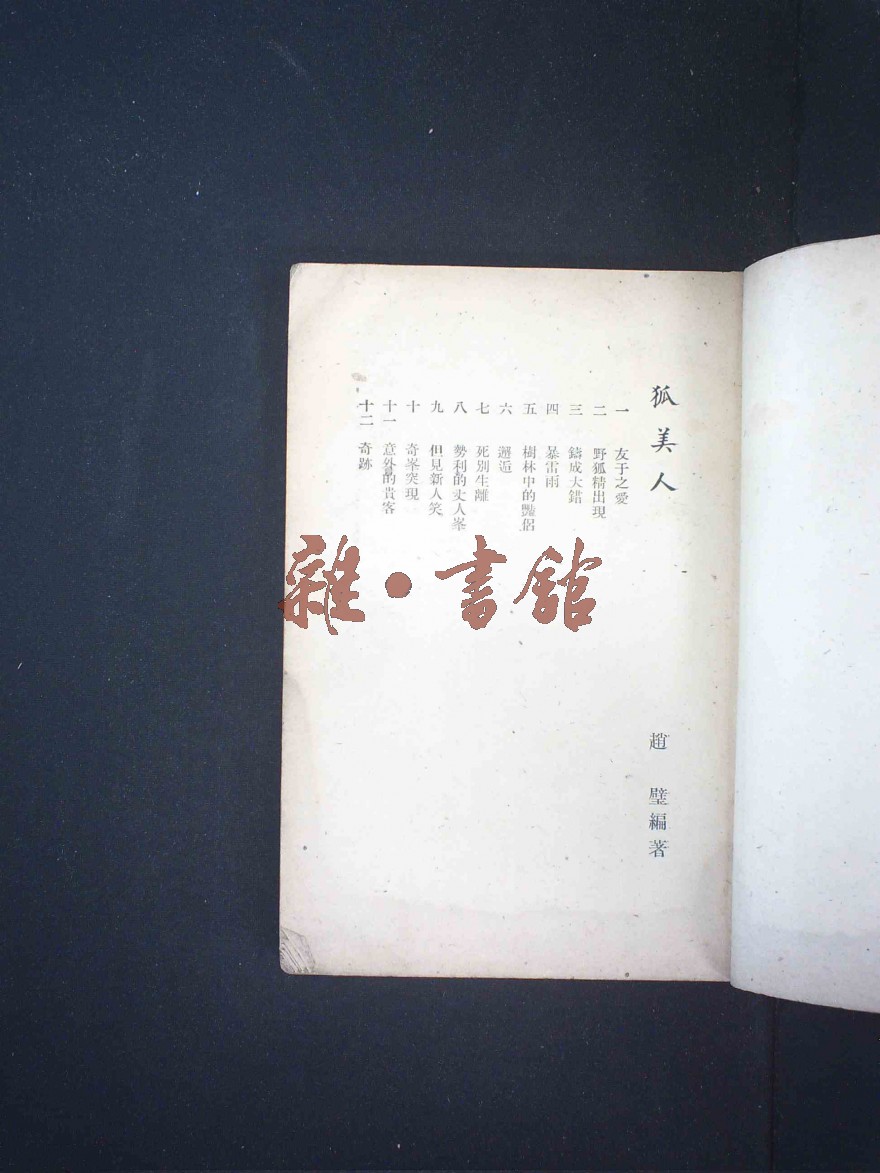 狐美人
趙璧編著
一 友于之愛
二 野狐精出現
三 鑄成大錯
四 暴雷雨
五 樹林中的豔侶
六 邂逅
七 死別生離
八 勢利的丈人峯
九 但見新人笑
十 奇峯突現
十一 意外的貴客
十二 奇跡
雜·書館